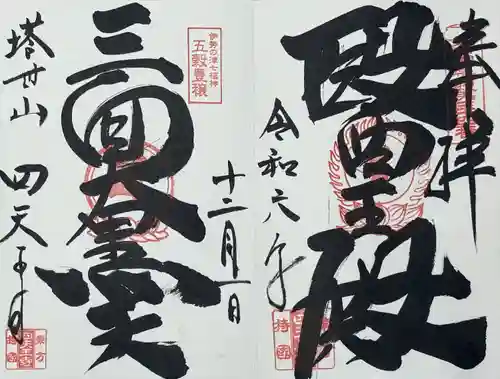 奉拝
醫王殿
令和六年
十二月一日
伊勢の津七福神
五穀豊穣
三面大黒天
塔世山 四天王寺